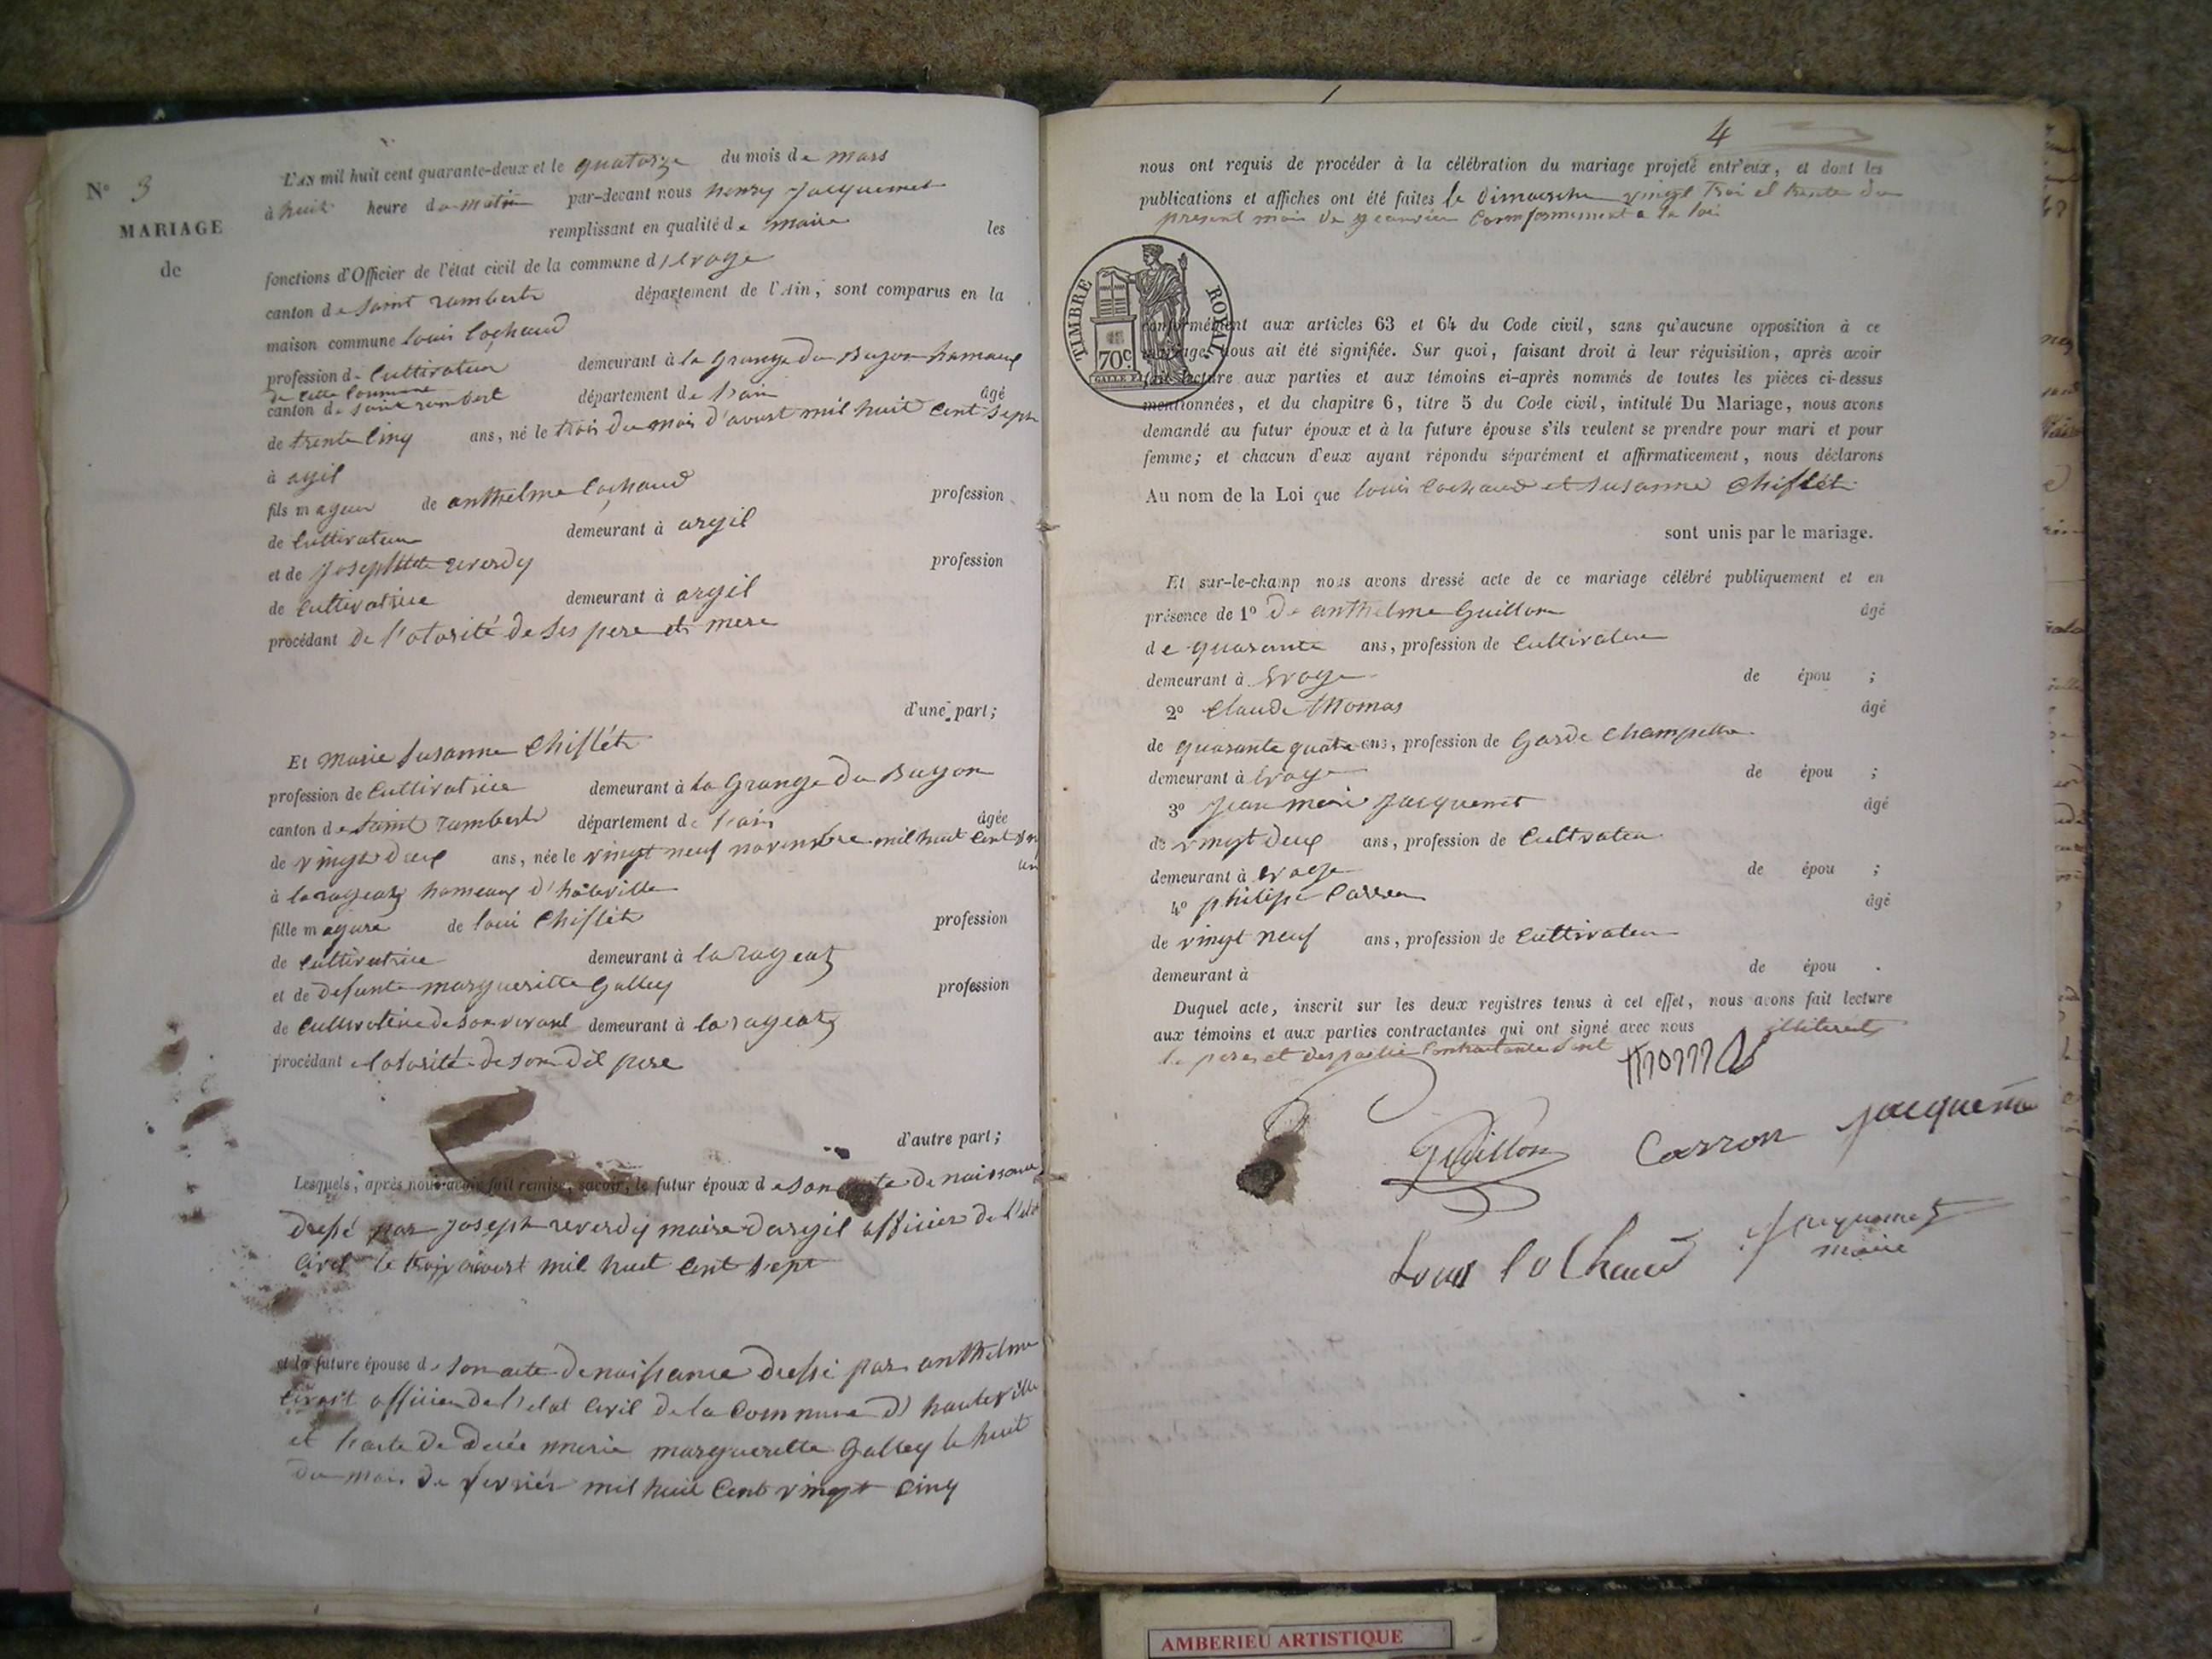 N° 3
MARIAGE
de
L'AN mil huit cent quarante-deux et le quatorze du mois de mars
à huit heure du matin par-devant nous henry jacquemet
remplissant en qualité de maire les
fonctions d'Officier de l'état civil de la commune d'evoge
canton de saint rambert département de l'Ain, sont comparus en la
maison commune louis Cochaud
profession de Cultivateur demeurant à la grange du Bugon hameaux
de cette Commune
canton de saint rambert département de l'ain âgé
de trente Cinq ans, né le trois du mois d'avust mil huit cent sept
à argil
fils majeur de anthelme Cochaud profession
de Cultivateur demeurant à argil
et de josephtte reverdy profession
de Cultivatrice demeurant à argil
procédant de l'otorité de ses pere et mere
d'une part;
Et Marie Susanne Chiflét
profession de Cultivatrice demeurant à la Grange du Bugon
canton de saint rambert département de l'ain âgée
de vingt deux ans, née le vingt neuf novembre mil huit Cent
à larageat hameaux d'hauteville
fille majure de loui Chiflét profession
de cultivatrice demeurant à larageat
et de defunte margueritte Golley profession
de Cultivatrice de son vivant demeurant à larageat
procédant otorité de son dit pere
d'autre part;
Lesquels, après nous avoir fait remise, savoir, le futur époux de son acte de naissance
dressé par joseph reverdy maire dargil officier de l'etat
Civil le trois avoust mil huit Cent sept
et la future épouse de son acte de naissance dressé par anthelme
officier de l'etat Civil de la Commune d'hauteville
et l'acte de decée marie margueritte Golley le huit
du mois de fevriér mil huit Cent vingt cinq
4
nous ont requis de procéder à la célébration du mariage projeté entr'eux, et dont les
publications et affiches ont été faites le dimanche vingt troi et trente du
present mois de jeanvier Conformement a la loi
TIMBRE ROYAL
70c.
conformément aux articles 63 et 64 du Code civil, sans qu'aucune opposition à ce
mariage nous ait été signifiée. Sur quoi, faisant droit à leur réquisition, après avoir
fait lecture aux parties et aux témoins ci-après nommés de toutes les pièces ci-dessus
mentionnées, et du chapitre 6, titre 5 du Code civil, intitulé Du Mariage, nous avons
demandé au futur époux et à la future épouse s'ils veulent se prendre pour mari et pour
femme; et chacun d'eux ayant répondu séparément et affirmativement, nous déclarons
Au nom de la Loi que louis Cochaud et Susanne Chiflét
sont unis par le mariage.
Et sur-le-champ nous avons dressé acte de ce mariage célébré publiquement et en
présence de 1° De anthelme Guillon âgé
de quarante ans, profession de Cultivateur
demeurant à Evoge de épou ;
2° Claude Thomas âgé
de quarante quatre ans, profession de Garde Champettre
demeurant à Evoge de épou ;
3° jean marie jacquemet âgé
de vingt deux ans, profession de Cultivateur
demeurant à Evoge de épou ;
4° philipe Carron âgé
de vingt neuf ans, profession de Cultivateur
demeurant à de épou .
Duquel acte, inscrit sur les deux registres tenus à cet effet, nous avons fait lecture
aux témoins et aux parties contractantes qui ont signé avec nous illiterets
le peres et des partie Contractante sont
Thomas
Guillon Carron jacquemet
Louis Cochaud Jacquemet
maire
AMBERIEU ARTISTIQUE